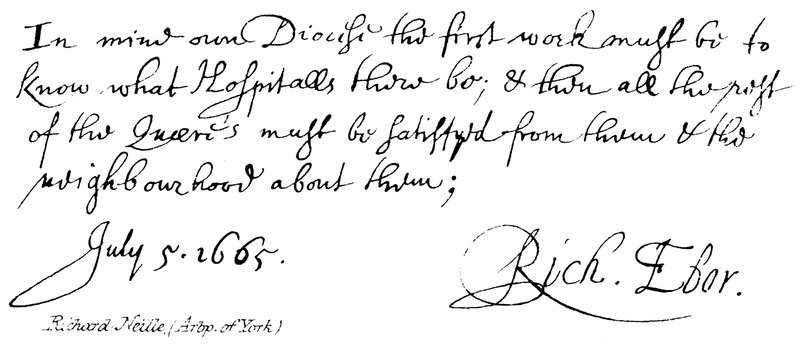 In mine own Diocese the first work must be to
know what Hospitalls there be; & then all the rest
of the Quære's must be satisfyed from them & the
neighbourhood about them;
July 5. 1665.
Rich. Ebor.
Richard Neille, (Arbp. of York)